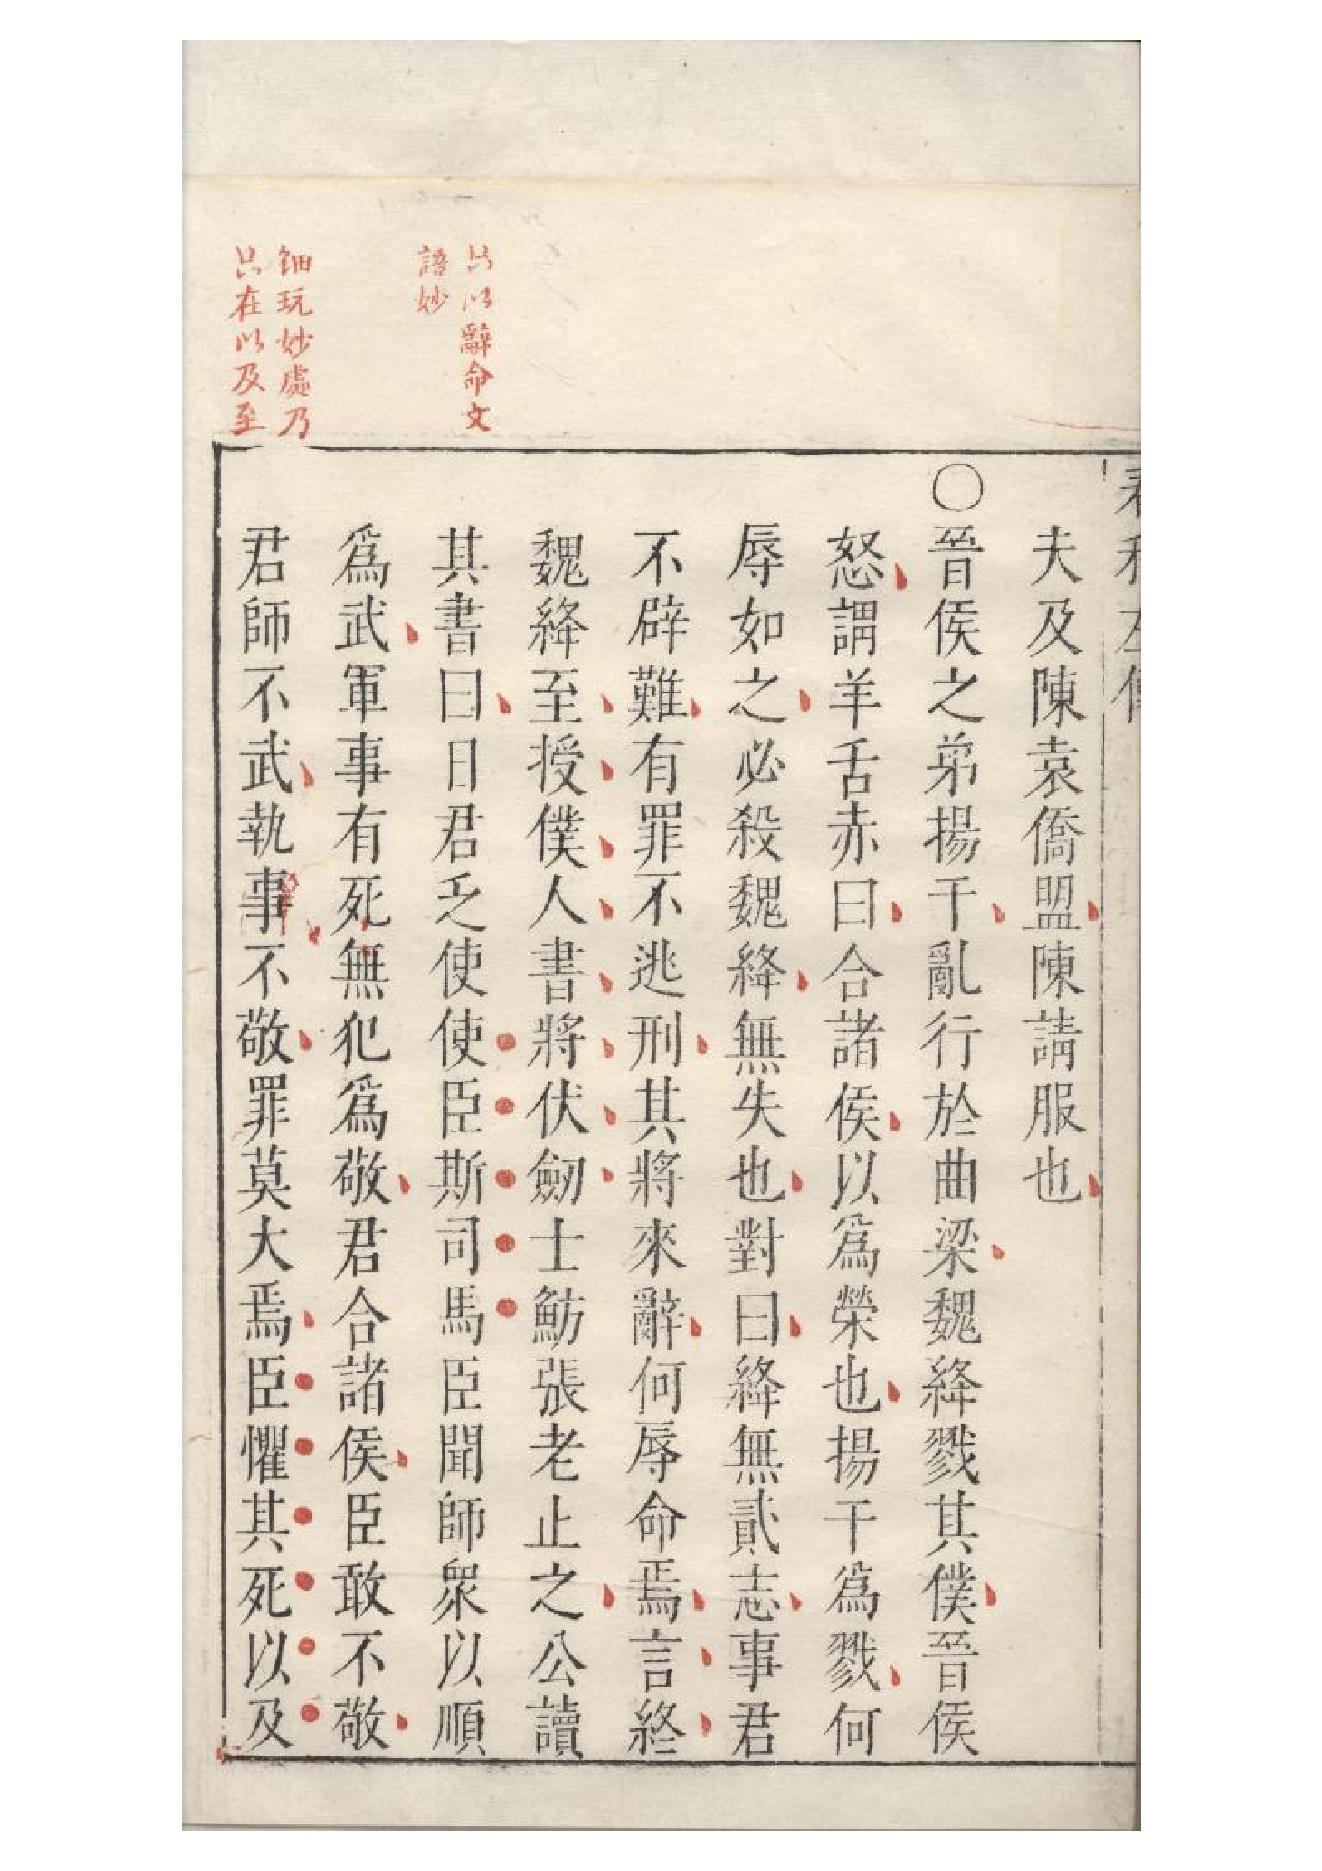 夫及陳袁僑盟陳請服也
〇晉侯之弟揚干亂行於曲梁魏絳戮其僕晉侯
怒謂羊舌赤曰合諸侯以爲榮也揚干爲戮何
辱如之必殺魏絳無失也對曰絳無貳志事君
不辟難有罪不逃刑其將來辭何辱命焉言終
魏絳至授僕人書將伏劒士魴張老止之公讀
其書曰日君乏使使臣斯司馬臣聞師衆以順
爲武軍事有死無犯爲敬君合諸侯臣敢不敬
君師不武執事不敬罪莫大焉臣懼其死以及
只以辭命文
語妙
細玩妙處乃
只在以及至